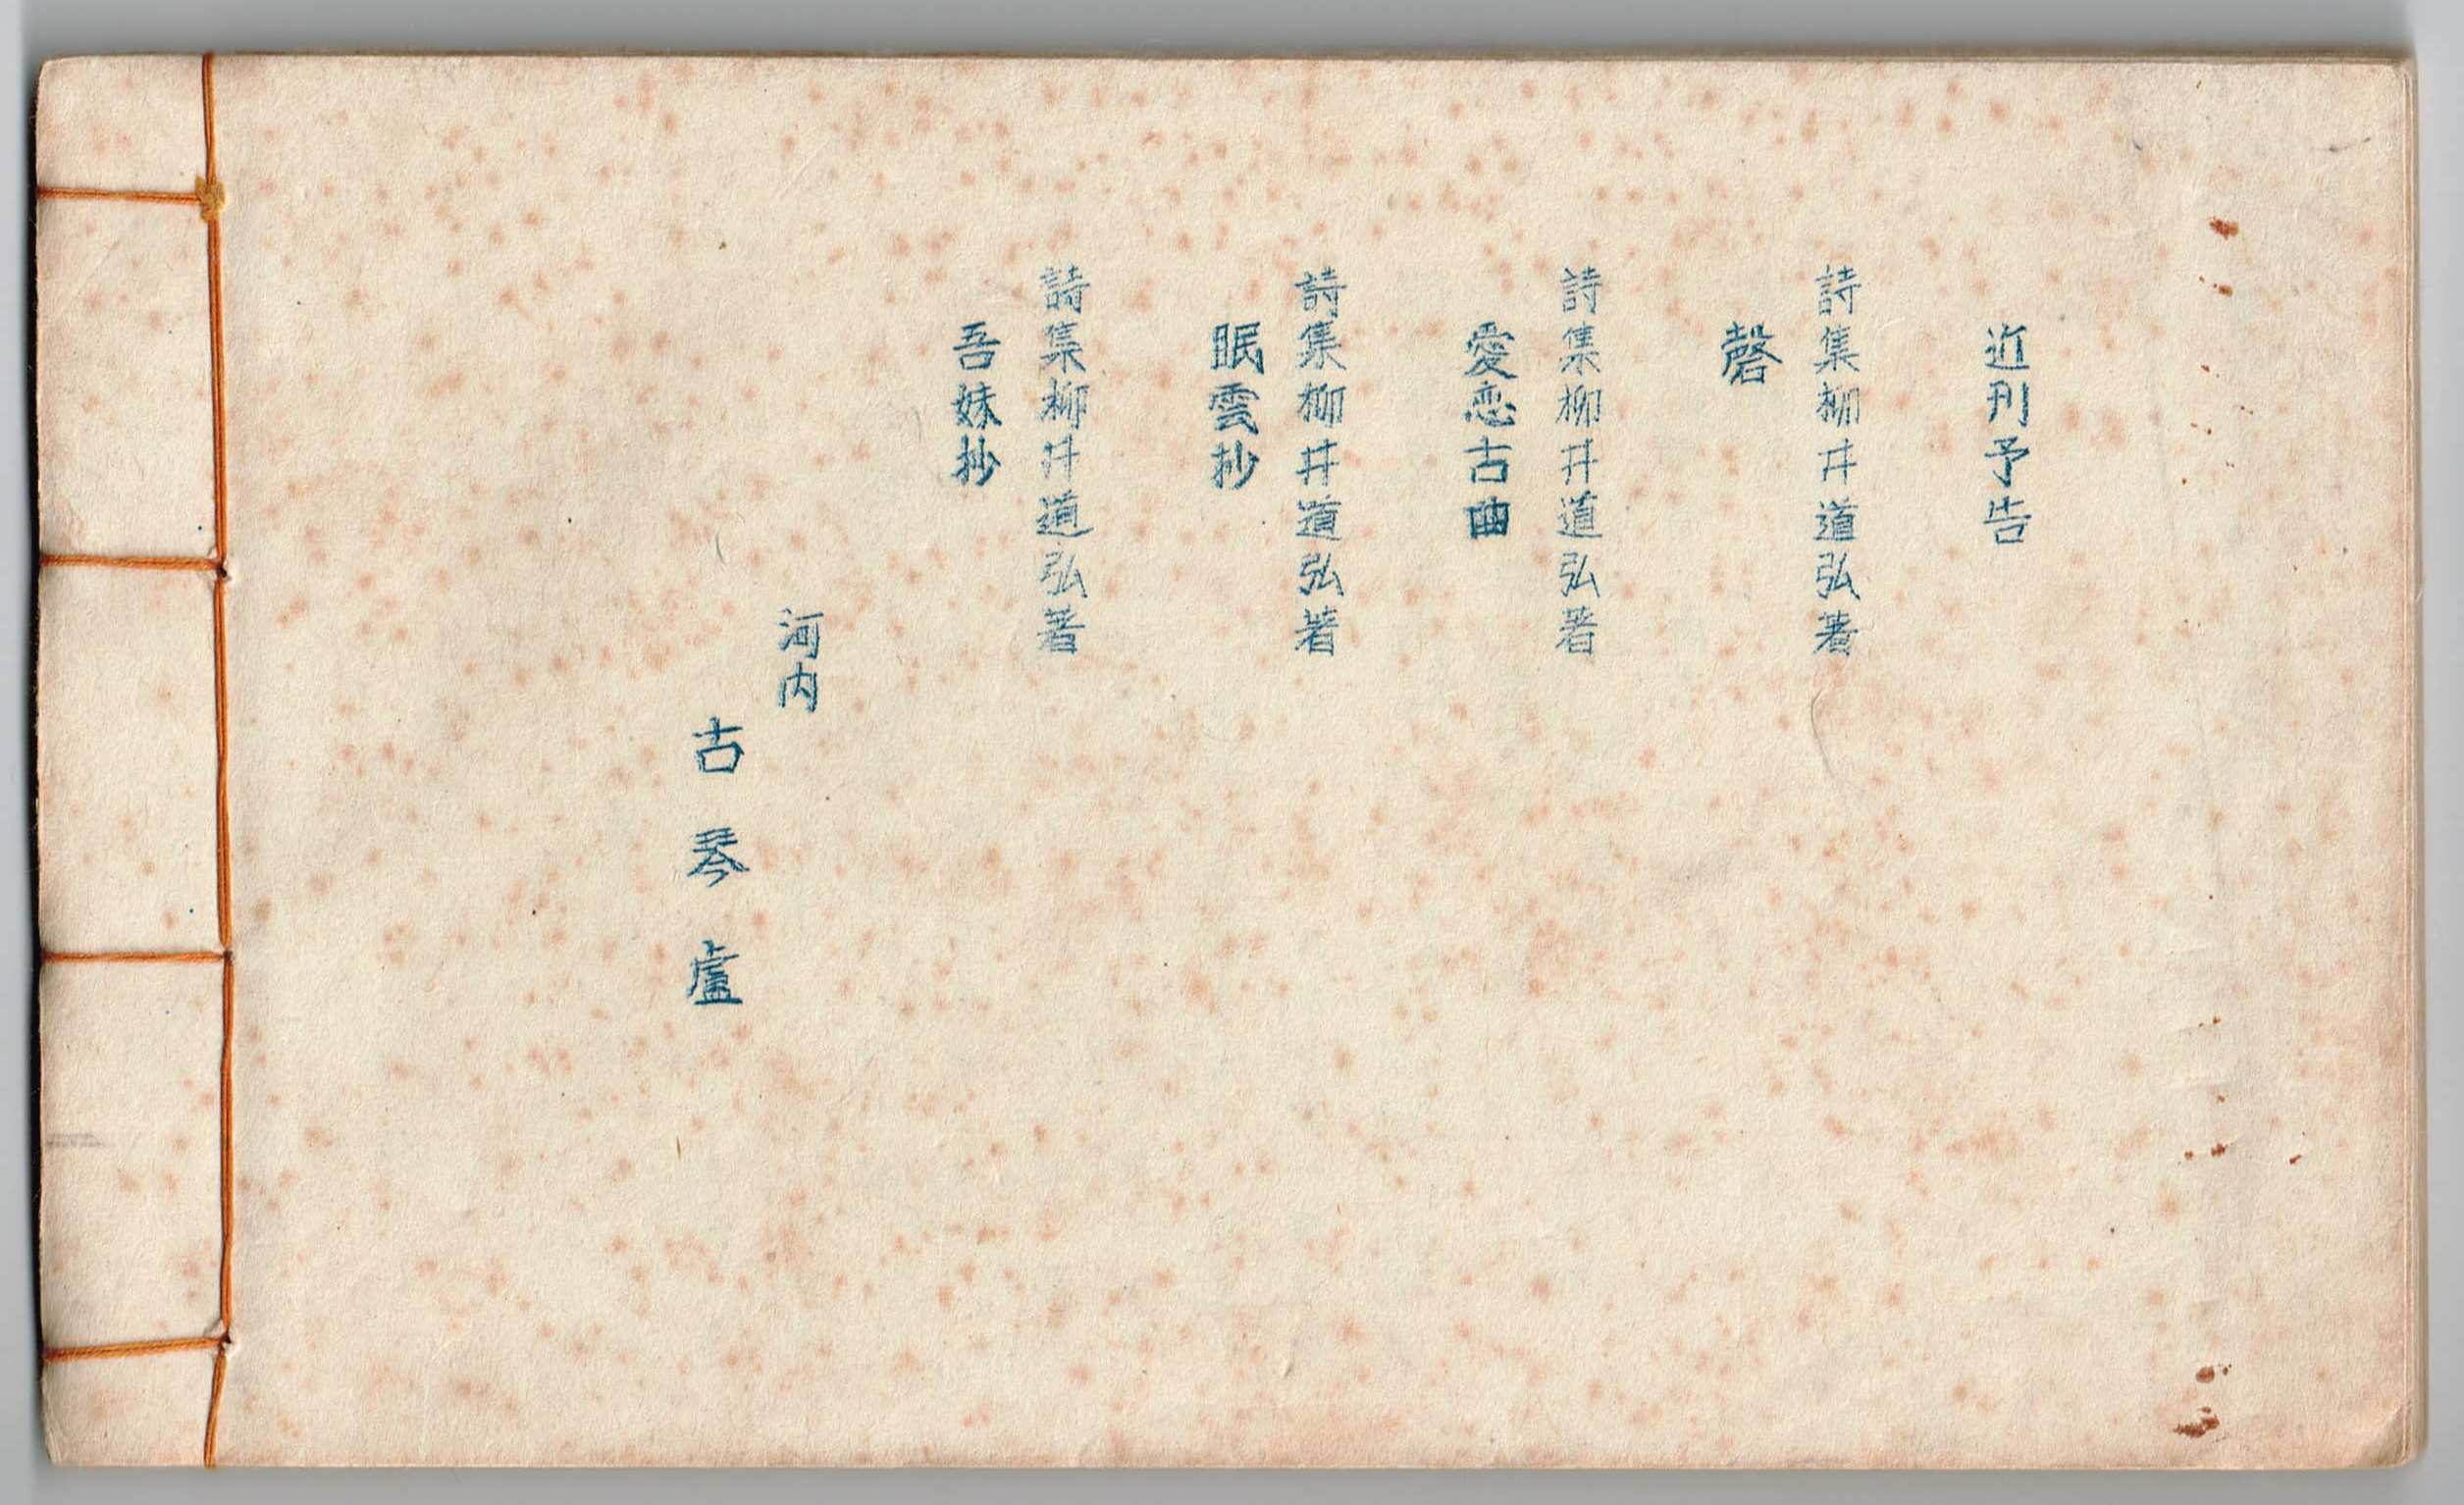 近刊予告
詩集柳井道弘著
磬
詩集柳井道弘著
愛恋古曲
詩集柳井道弘著
眠雲抄
詩集柳井道弘著
吾妹抄
河内
古琴盧